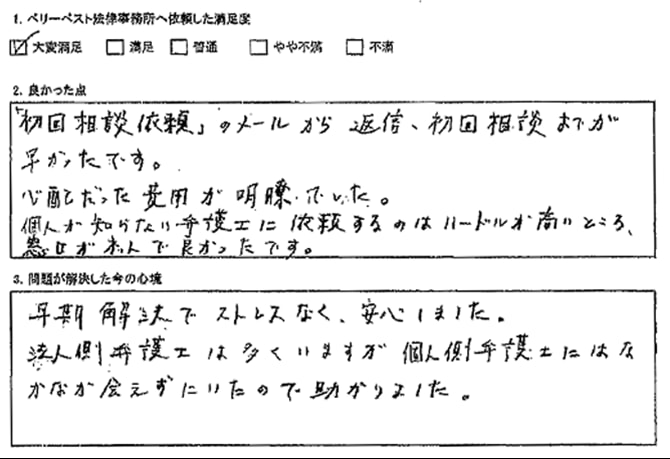 1. ベリーベスト法律事務所へ依頼した満足度
☑ 大変満足 □ 満足 □ 普通 □ やや不満 □ 不満
2. 良かった点
「初回相談依頼」のメールから返信、初回相談までが
早かったです。
心配だった費用が明瞭でした。
個人が知らない弁護士に依頼するのはハードルが高いところ、
窓口が本人で良かったです。
3. 問題が解決した今の心境
早期解決でストレスなく、安心しました。
法人側弁護士は多くいますが個人側弁護士にはな
かなか会えずにいたので助かりました。